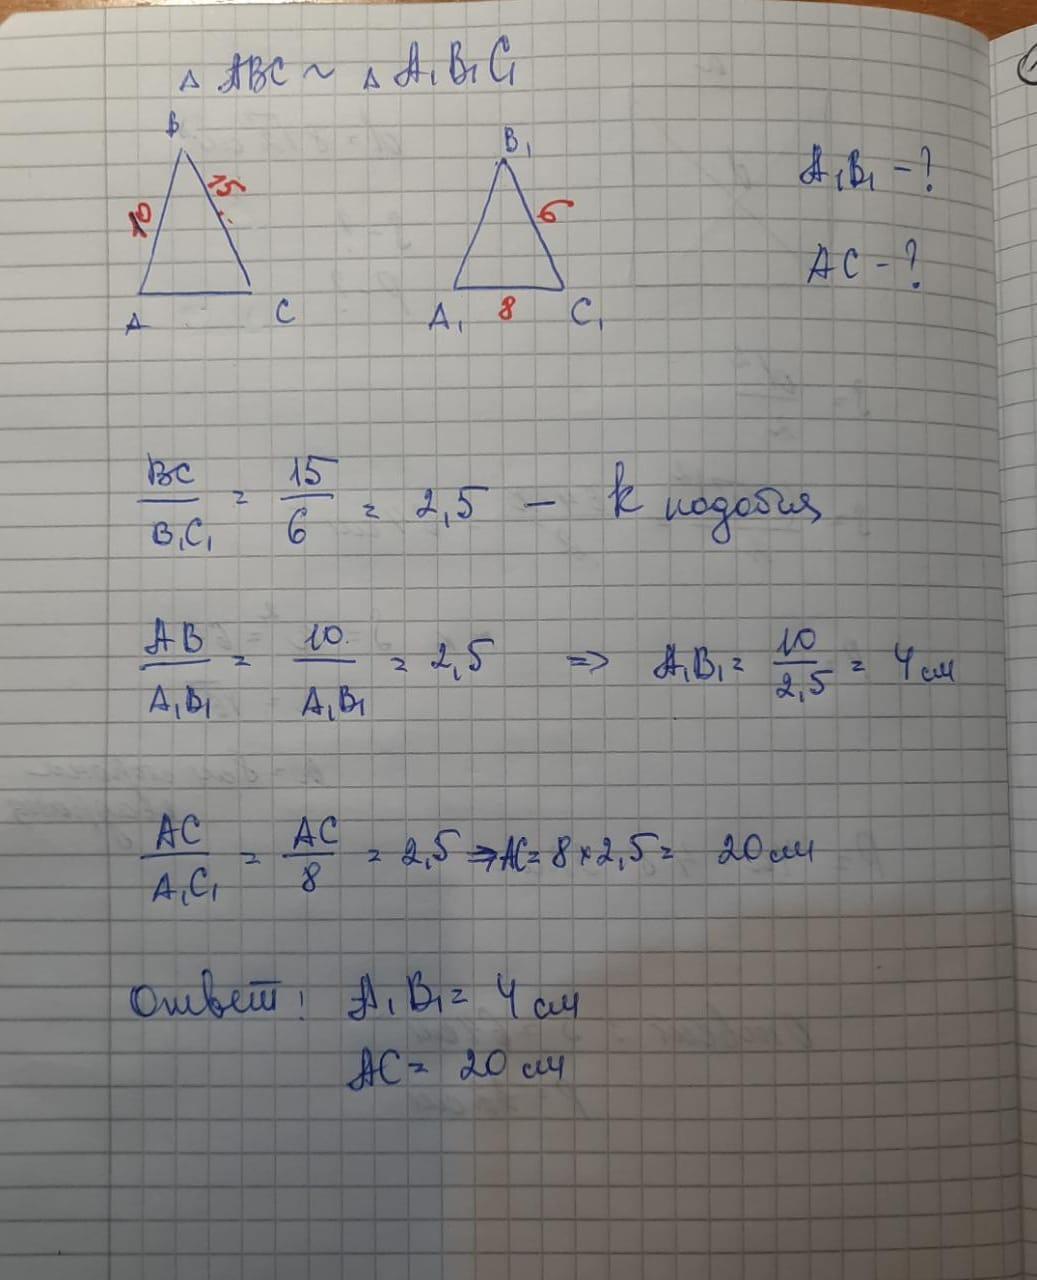 △ ABC ~ △ A₁B₁C₁
B
B₁
A₁B₁ - ?
10
15
6
AC - ?
A
C
A₁
8
C₁
BC/B₁C₁ = 15/6 = 2,5 — k подобия
AB/A₁B₁ = 10/A₁B₁ = 2,5 => A₁B₁ = 10/2,5 = 4 см
AC/A₁C₁ = AC/8 = 2,5 => AC = 8 × 2,5 = 20 см
Ответ: A₁B₁ = 4 см
AC = 20 см